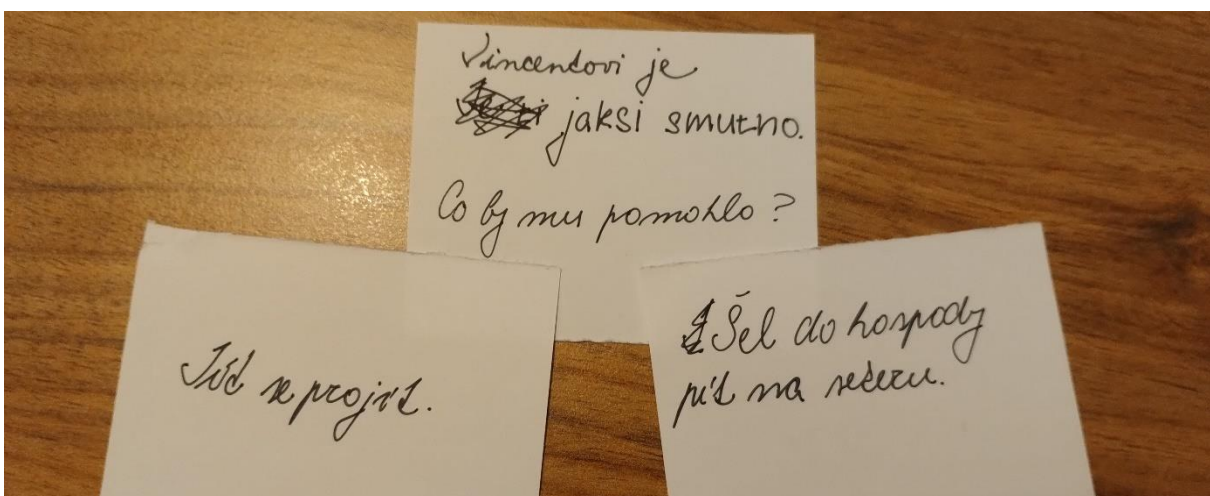 Vincentovi je
jaksi smutno.
Co by mu pomohlo?
Jít se projít.
Šel do hospody
pít na sekeru.